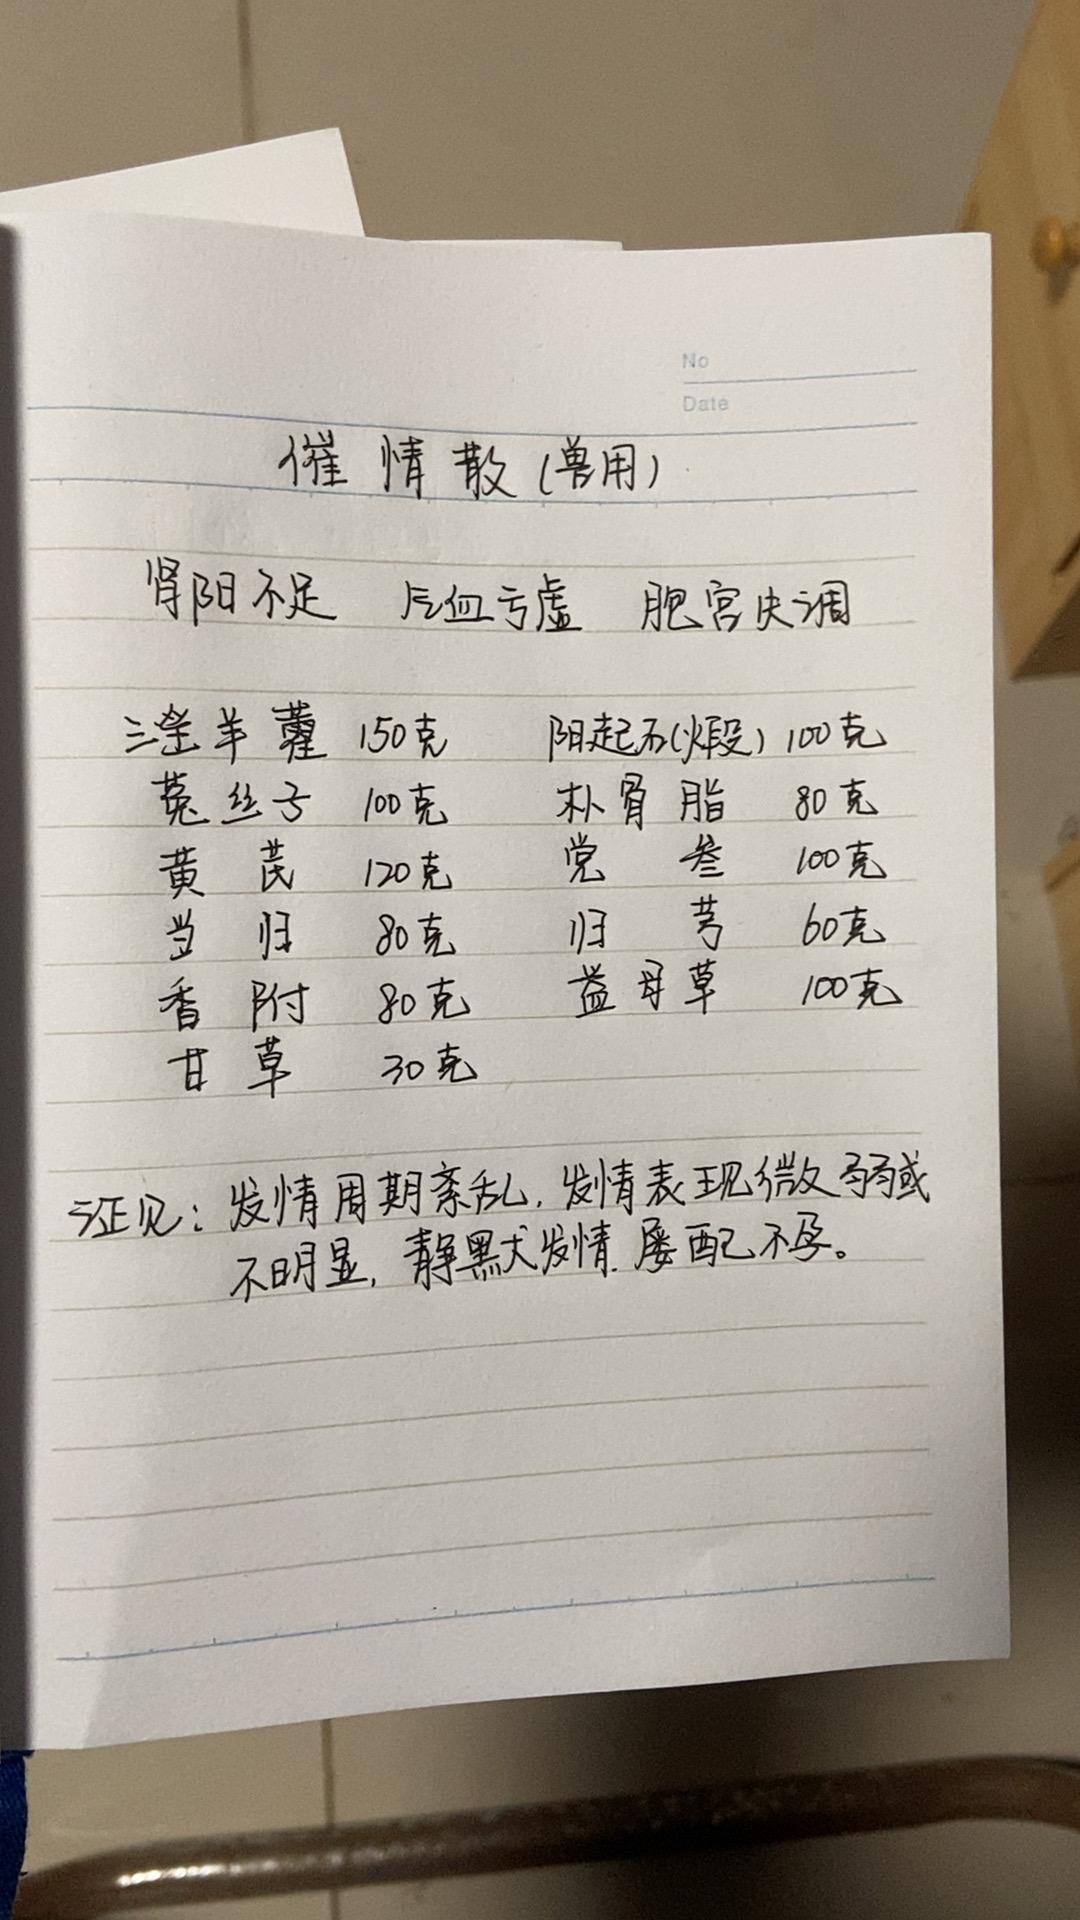 No
Date
催情散(兽用)
肾阳不足 气血亏虚 胞宫失调
淫羊藿 150克 阳起石(火段) 100克
菟丝子 100克 朴骨脂 80克
黄芪 120克 党叁 100克
当归 80克 归芎 60克
香附 80克 益母草 100克
甘草 30克
证见:发情周期紊乱,发情表现微弱或
不明显,静默犬发情.屡配不孕。